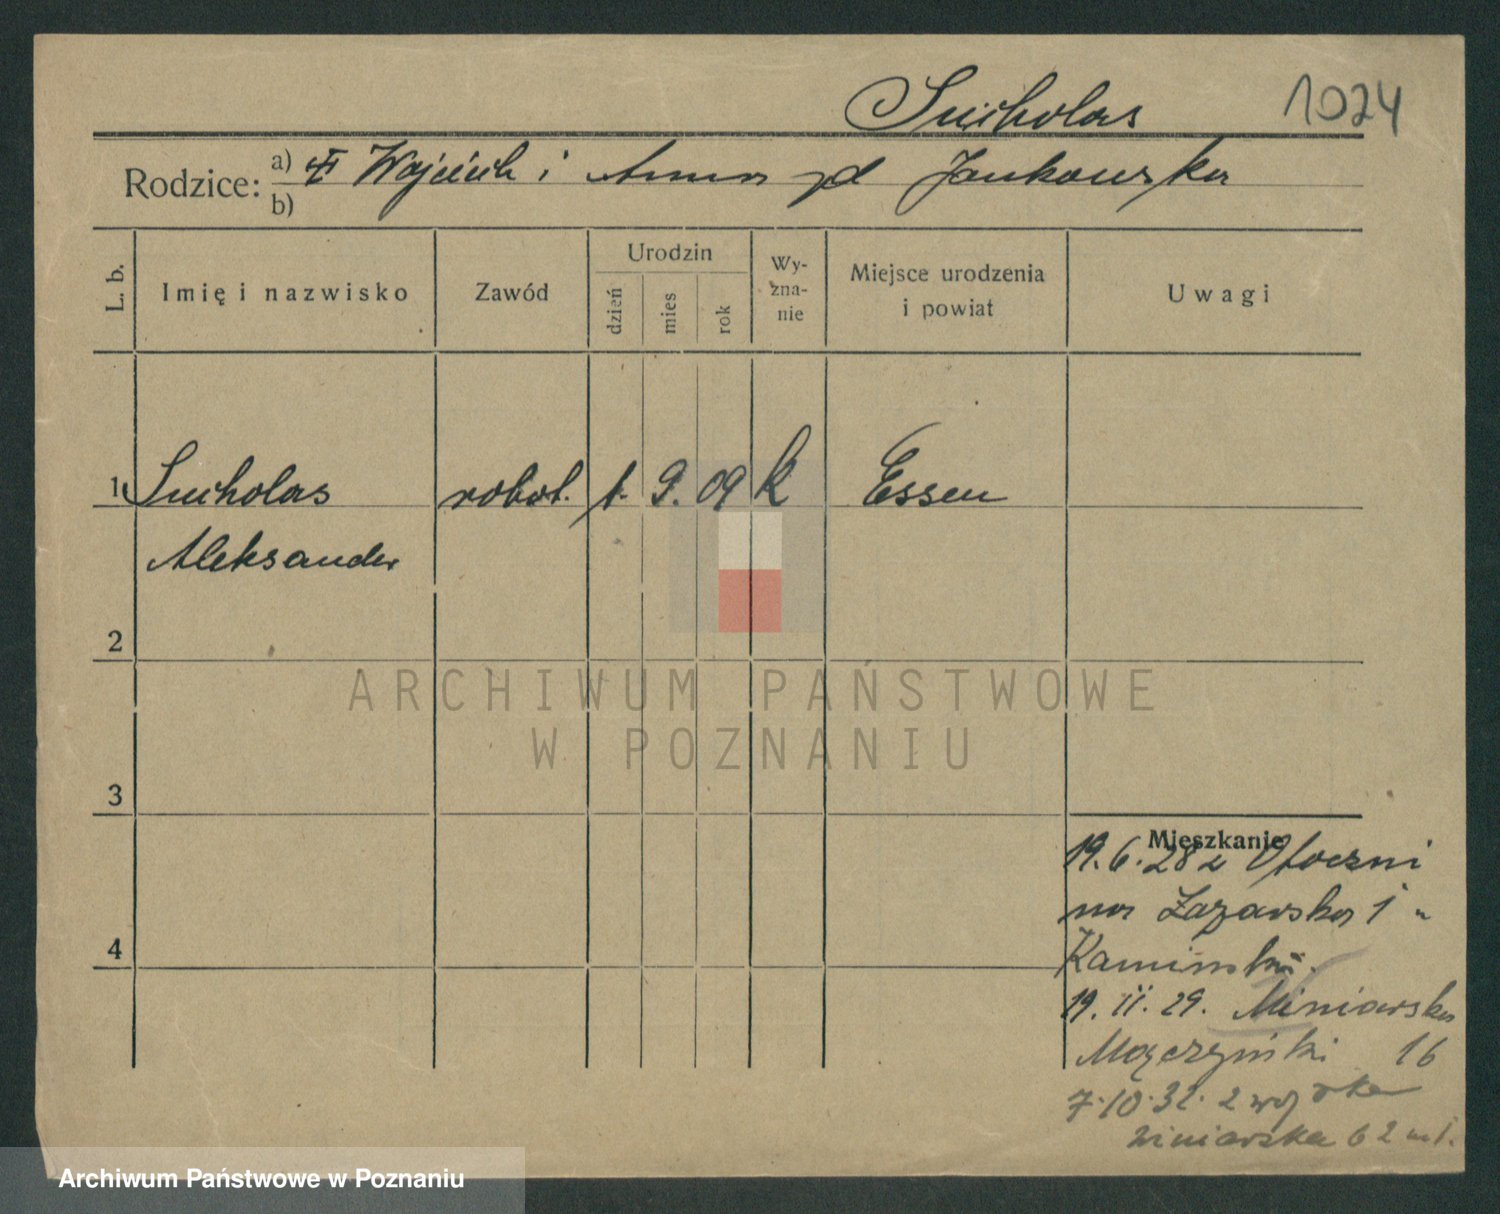 Sucholas 1024
Rodzice: a) Wojciech i Anna zd Jankowska
b)
L. b. Imię i nazwisko Zawód Urodzin dzień mies rok Wy-zna-nie Miejsce urodzenia i powiat Uwagi
1 Sucholas robot. 1. 9. 09 k Essen
Aleksander
2
ARCHIWUM PAŃSTWOWE
W POZNANIU
3
Mieszkanie
19.6.28 z
na Łazarska 1 u
4
Kamińska.
19. II. 29. Winiarska
Mączyński 16
7.10.32. z wojska
winiarska 62 m 1.
Archiwum Państwowe w Poznaniu